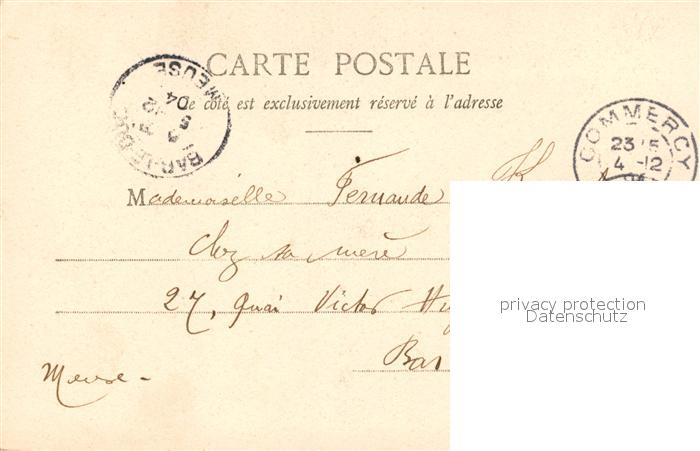 CARTE POSTALE
Ce côté est exclusivement réservé à l'adresse
BAR-LE-DUC
MEUSE
COMMERCY
23
4 -12
Mademoiselle Fernande K
Chez sa mère
27, Quai Victor Hug
Bar
Meuse -
privacy protection
Datenschutz